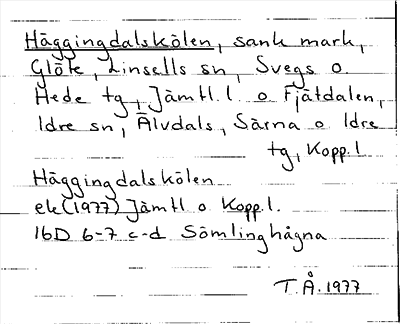 Häggingdalskölen, sank mark,
Glöte, Linsells sn, Svegs o.
Hede tg, Jämtl. l. o Fjätdalen,
Idre sn, Älvdals, Särna o Idre
tg, Kopp. l
Häggingdalskölen
ek (1977) Jämtl o Kopp. l.
16D 6-7 c-d Sömlinghågna
T.Å. 1977